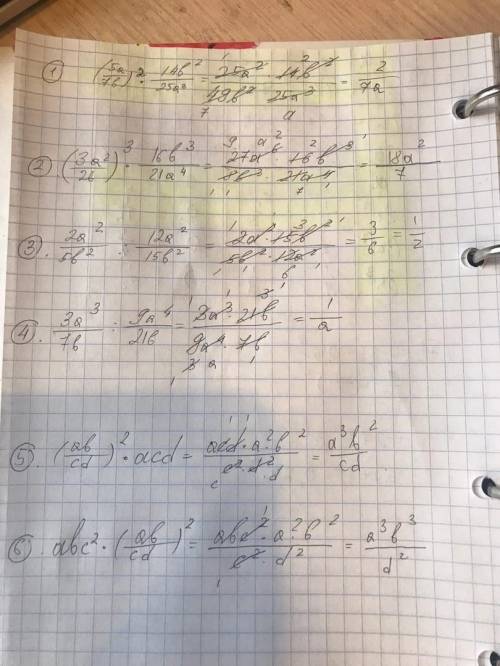 ① (5a/7b)² · 14b²/25a³ = 25a² · 14b²/49b² · 25a³ = 2/7a
② (3a²/2b)³ · 16b³/21a⁴ = 27a⁶ · 16b³/8b³ · 21a⁴ = 18a²/7
③. 2a²/5b² : 12a²/15b² = 2a² · 15b²/5b² · 12a² = 3/6 = 1/2
④. 3a³/7b : 9a⁴/21b = 3a³ · 21b/9a⁴ · 7b = 1/a
⑤. (ab/cd)² · acd = acd · a²b²/c² · d² · d = a³b²/cd
⑥. abc² · (ab/cd)² = abc² · a²b²/c² · d² = a³b³/d²